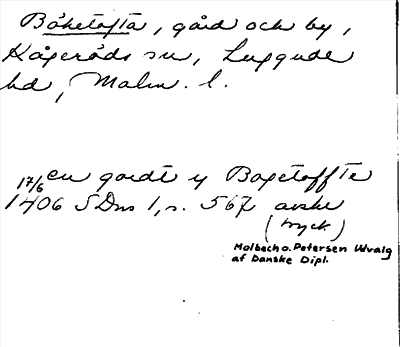 Böketofta, gård och by,
Kågeröds sn, Luggude
hd, Malm. l.
17/6 en gordt y Bogetoffte
1406 SDns 1, s. 567 avskr
(tryck)
Molbech o. Petersen Udvalg
af Danske Dipl.